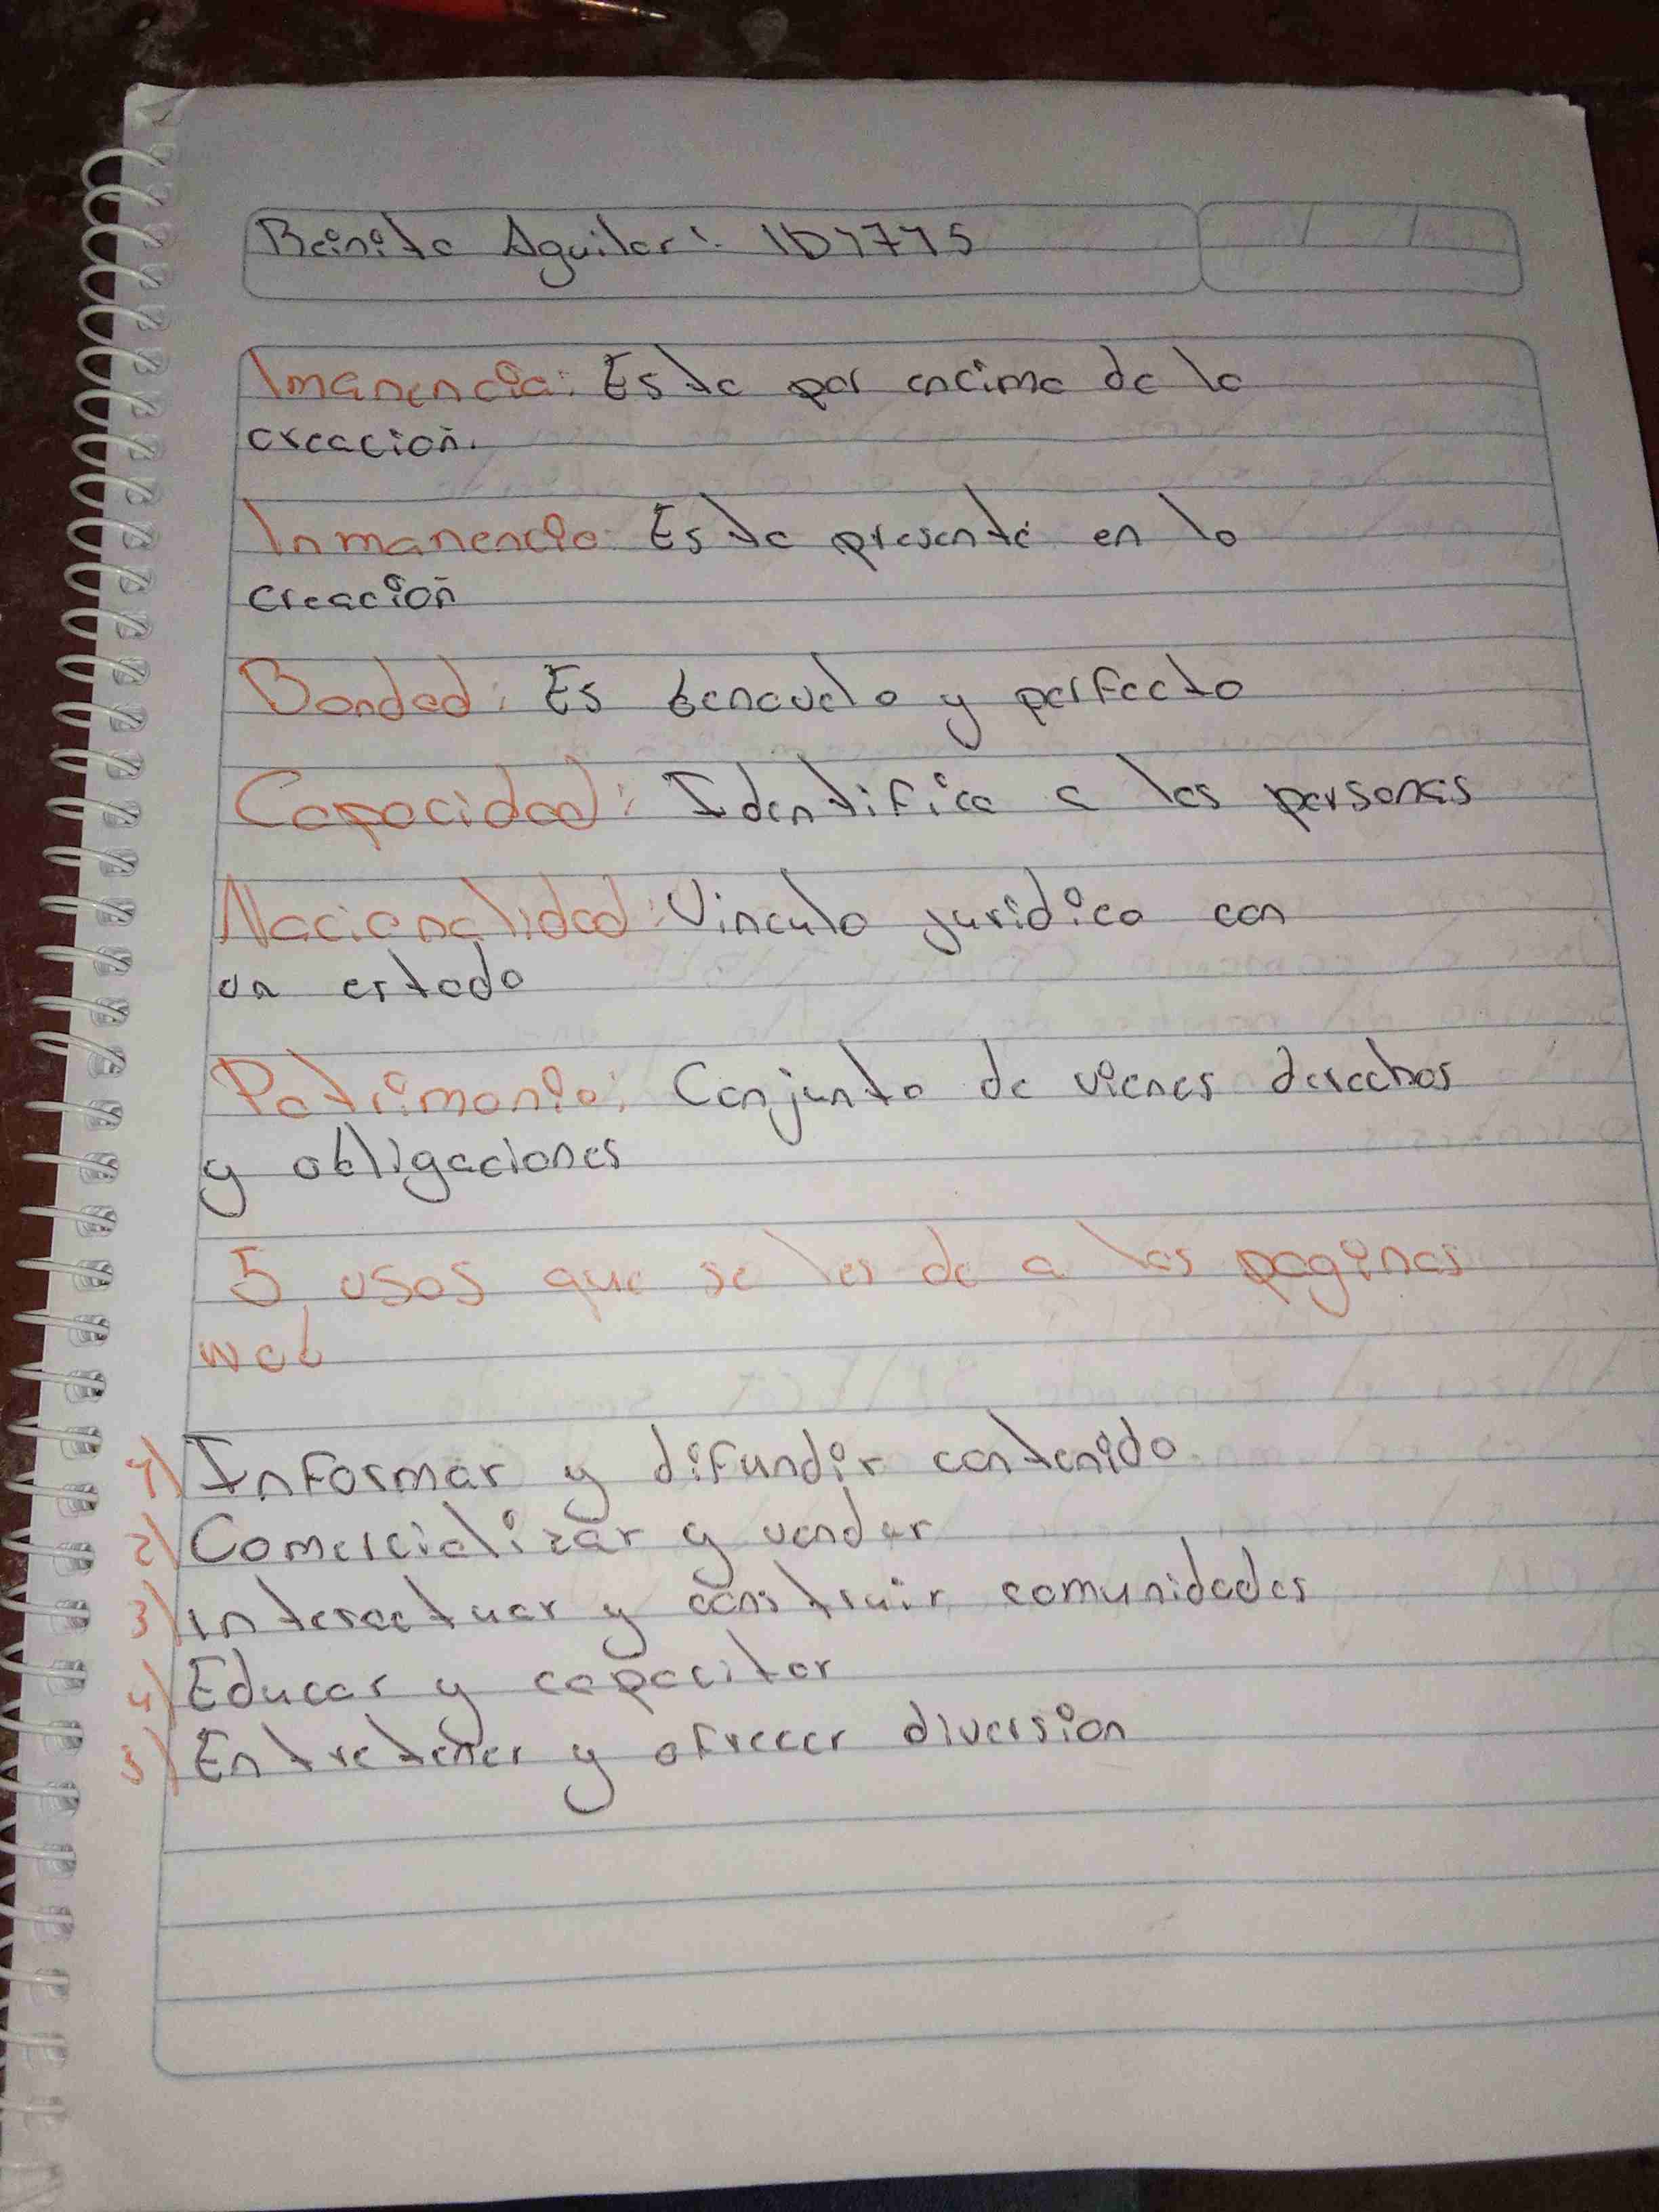 Beinita Aguilar: ID1775
Imanencia: Esta por encima de la
creación.
Inmanencia: Esta presente en lo
creación
Bondad: Es benevelo y perfecto
Capacidad: Identifica a las personas
Nacionalidad: Vinculo juridico con
un estado
Patrimonio: Conjunto de vienes derechos
y obligaciones
5 usos que se les de a las paginas
web
1) Informar y difundir contenido
2) Comercializar y vender
3) interactuar y construir comunidades
4) Educar y capacitar
5) Entretener y ofrecer diversion